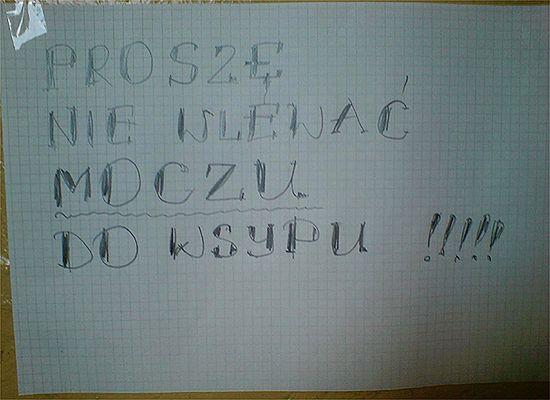 PROSZĘ
NIE WLEWAĆ
MOCZU
DO WSYPU !!!!!